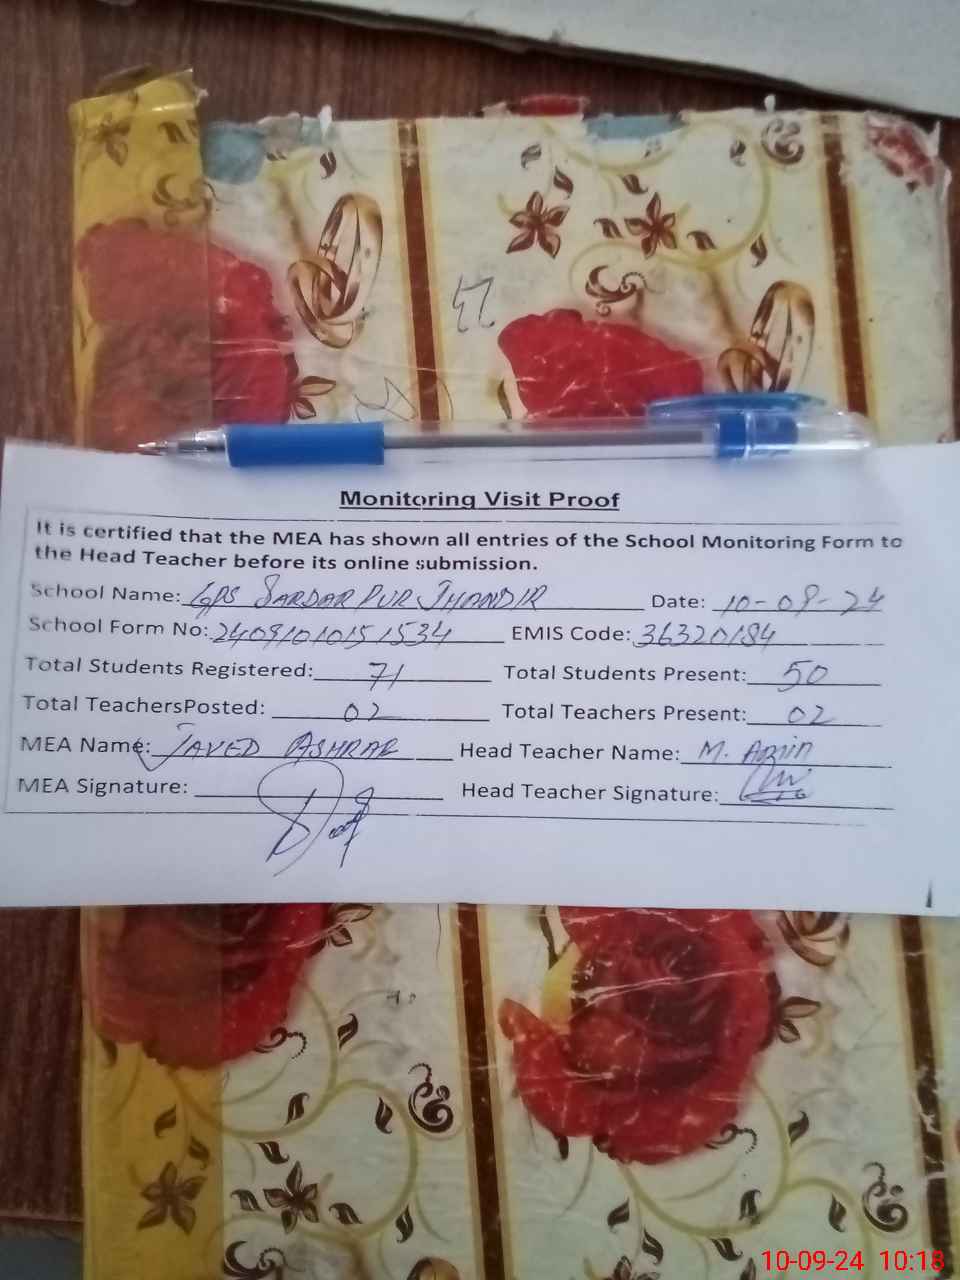 Monitoring Visit Proof
It is certified that the MEA has shown all entries of the School Monitoring Form to
the Head Teacher before its online submission.
School Name: GPS SARDAR PUR JHANDIR Date: 10-09-24
School Form No: 24091010151534 EMIS Code: 36320184
Total Students Registered: 71 Total Students Present: 50
Total TeachersPosted: 02 Total Teachers Present: 02
MEA Name: JAVED ASHRAF Head Teacher Name: M. Amin
MEA Signature: Head Teacher Signature:
10-09-24 10:18